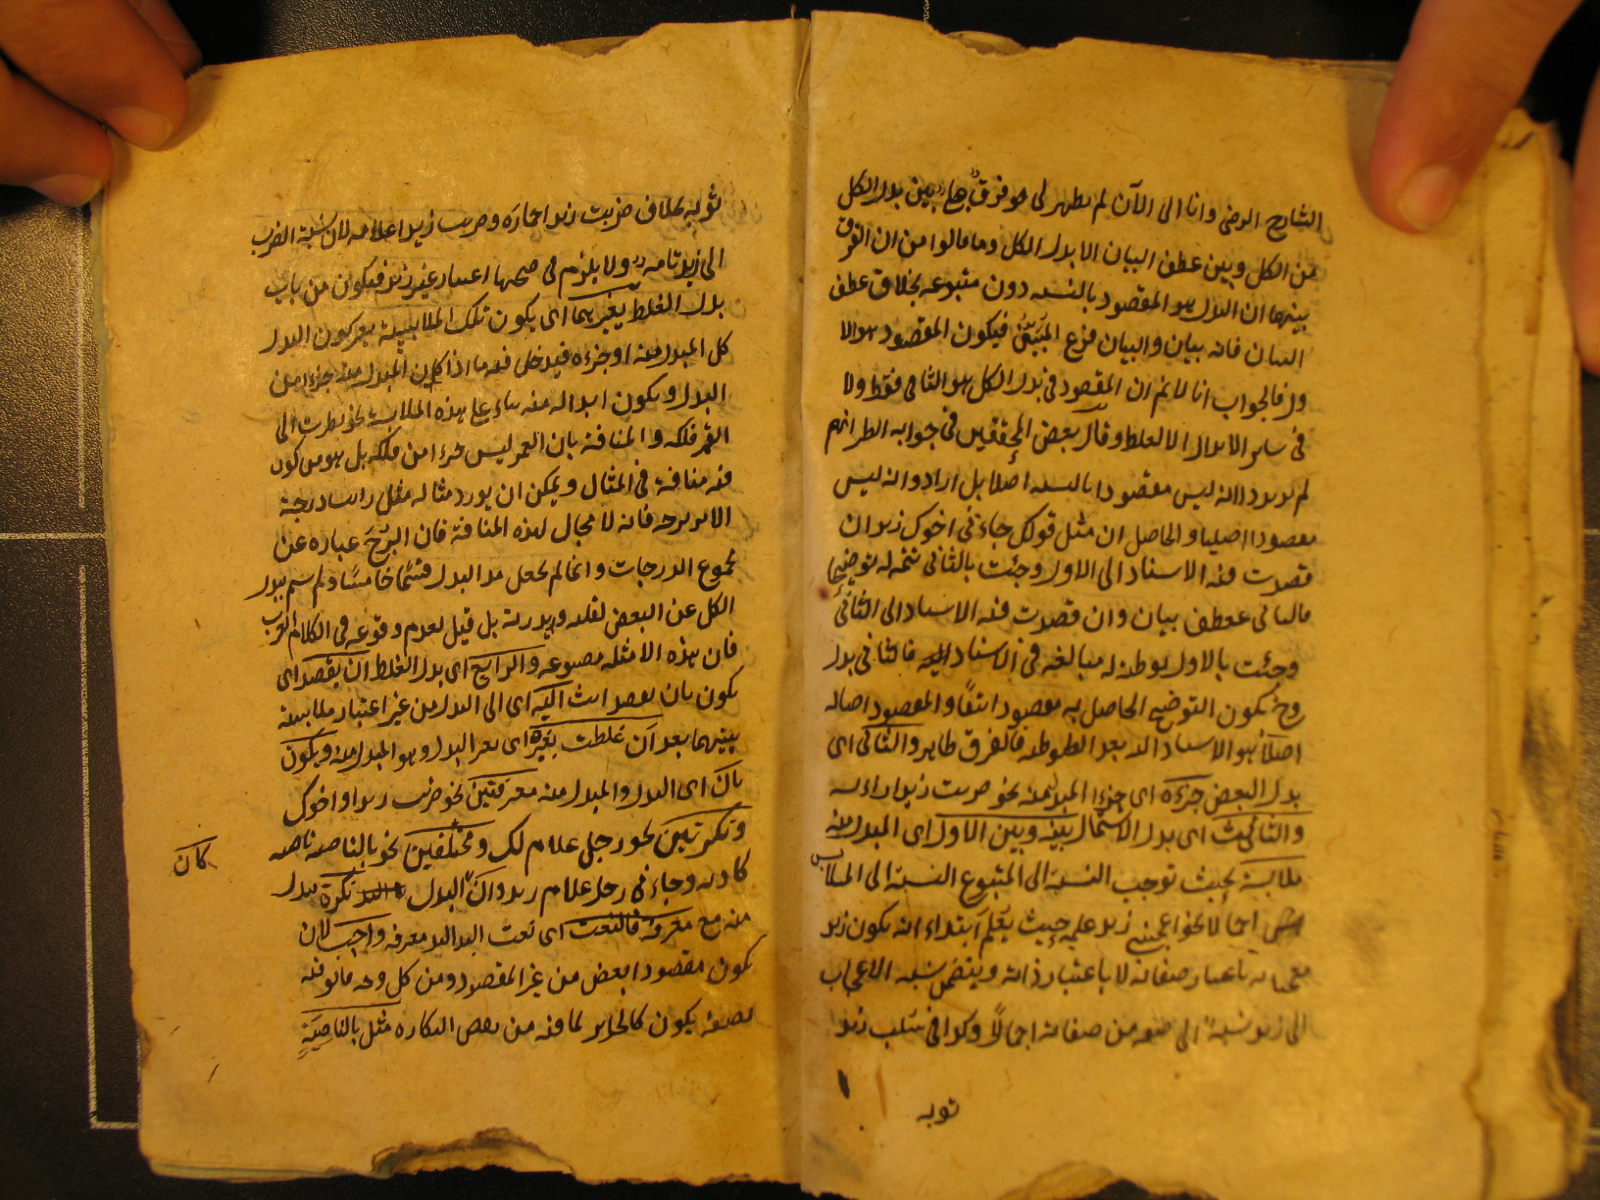 الشارح الرضي وانا الى الآن لم يظهر لي فرق جلي بين بدل الكل
من الكل وبين عطف البيان الا بدل الكل وما قالوا من ان الفرق
بينهما ان البدل هو المقصود بالنسبه دون متبوعه بخلاف عطف
البيان فانه بيان والبيان فرع المبيَّن فيكون المقصود هو الا
ول فالجواب انا لا نم ان المقصود في بدل الكل هو الثاني فقط ولا
في ساير الابدال الا الغلط وقال بعض المحققين في جوابه الظ انهم
لم يريدوا انه ليس مقصودا بالنسبه اصلا بل ارادوا انه ليس
مقصودا اصليا والحاصل ان مثل قولك جاءني اخوك زيد ان
قصدت فيه الاسناد الى الاول وجئت بالثاني تتمه له توضيحا
فالثاني عطف بيان وان قصدت فيه الاسناد الى الثاني
وجئت بالاول توطئه له مبالغه في الاسناد فالثاني بدل
وح يكون التوضيح الحاصل به مقصودا تبعًا والمقصود اصاله
هو الاسناد اليه بعد التوطئه فالفرق ظاهر والثاني اى
بدل البعض جزءه اى جزء المبدل منه نحو ضربت زيدا راسه
والثالث اى بدل الاشتمال بينه وبين الاول اى المبدل منه
ملابسة بحيث توجب النسبه الى المتبوع النسبه الى الملابس
اجمالا نحو اعجبني زيد علمه حيث يعلم ابتداء انه يكون زيد
معجبا به باعتبار صفاته لا باعتبار ذاته ويتضمن نسبه الاعجاب
الى زيد نسبةً الى صفه من صفاته اجمالًا وكذا في سلب زيد
ثوبه
ثوبه بخلاف ضربت زيدا حماره وضربت زيدا غلامه لان نسبة الضرب
الى زيد تامه ولا يلزم في صحتها اعتبار غير زيد فيكون من باب
بدل الغلط بغيرهما اى يكون تلك الملابسة بغير كون البدل
كل المبدل منه او جزءه فيدخل فيه ما اذا كان المبدل منه جزءا من
البدل ويكون ابداله منه بناء على هذه الملابسة نحو نظرت الى
القمر فلكه والمناقشة بان القمر ليس جزءا من فلكه بل هو مركوز
فيه مناقشة في المثال ويمكن ان يورد مثاله مثل رايت درجة
الاسد برجه فانه لا مجال لهذه المناقشة فان البرج عبارة عن
مجموع الدرجات وانما لم يجعل هذا البدل قسمًا خامسًا ولم يسم بدل
الكل عن البعض لقلته وندرته بل قيل لعدم وقوعه في الكلام العرب
فان هذه الامثله مصنوعه والرابع اى بدل الغلط ان يقصد اى
يكون بان يقصد انت اليه اى الى البدل من غير اعتبار ملابسة
بينهما بعد ان غلطت بغيره اى بغير البدل وهو المبدل منه ويكونان
كان
بان اى البدل والمبدل منه معرفتين نحو ضربت زيدا اخوك
ونكرتين نحو رجل غلام لك ومختلفين نحو بالناصيه ناصيه
كاذبه وجاءني رجل غلام زيد واذا كان البدل نكرة مبدل
منه مع معرفة فالنعت اى نعت البدل معرفه واجب لان
يكون مقصودا بعض من غير المقصود من كل وجه فاتوا فيه
بصفه يكون كالجابر لما فيه من نقص النكاره مثل بالناصيةِ